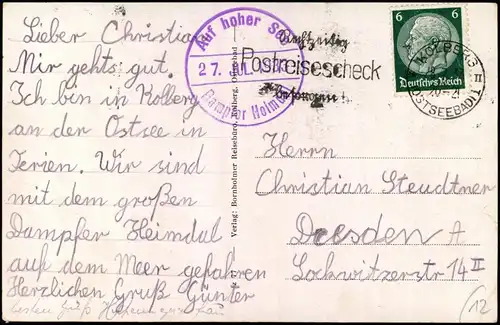 Lieber Christian
Mir gehts gut.
Ich bin in Kolberg
an der Ostsee in
Ferien. Wir sind
mit dem großen
Dampfer Heimdal
auf dem Meer gefahren
Herzlichen Gruß Günter
Auf hoher See
27. JUL.
Dampfer Heimdal
Rechtzeitig
Postreisescheck
besorgen!
6 6
Deutsches Reich
KOLBERG II
OSTSEEBAD
Verlag: Bornholmer Reisebüro, Kolberg, Ostseebad
Herrn
Christian Steudtner
Dresden A
Lockwitzerstr 14 II
12